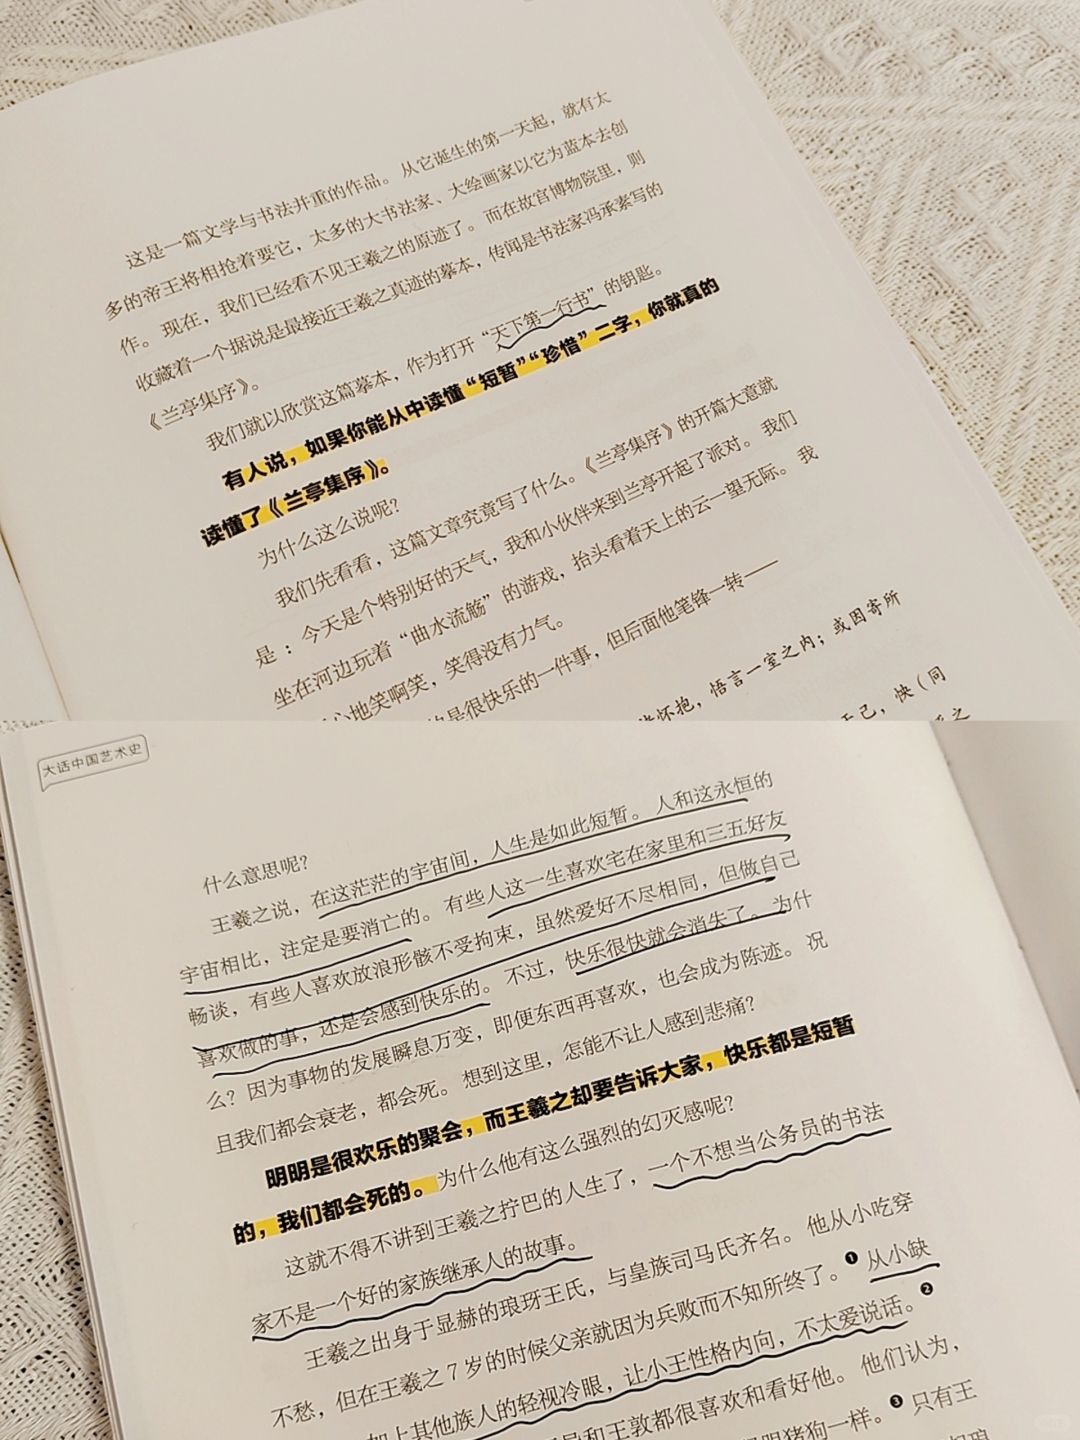 这是一篇文学与书法并重的作品。从它诞生的第一天起，就有太
多的帝王将相抢着要它，太多的大书法家、大绘画家以它为蓝本去创
作。现在，我们已经看不见王羲之的原迹了。而在故宫博物院里，则
收藏着一个据说是最接近王羲之真迹的摹本，传闻是书法家冯承素写的
《兰亭集序》。
我们就以欣赏这篇摹本，作为打开“天下第一行书”的钥匙。
有人说，如果你能从中读懂“短暂”“珍惜”二字，你就真的
读懂了《兰亭集序》。
为什么这么说呢？
我们先看看，这篇文章究竟写了什么。《兰亭集序》的开篇大意就
是：今天是个特别好的天气，我和小伙伴来到兰亭开起了派对。我们
坐在河边玩着“曲水流觞”的游戏，抬头看着天上的云一望无际。我
心地笑啊笑，笑得没有力气。
是很快乐的一件事，但后面他笔锋一转——
怀抱，悟言一室之内；或因寄所
己，快（同
大话中国艺术史
什么意思呢？
王羲之说，在这茫茫的宇宙间，人生是如此短暂。人和这永恒的
宇宙相比，注定是要消亡的。有些人这一生喜欢宅在家里和三五好友
畅谈，有些人喜欢放浪形骸不受拘束，虽然爱好不尽相同，但做自己
喜欢做的事，还是会感到快乐的。不过，快乐很快就会消失了。为什
么？因为事物的发展瞬息万变，即便东西再喜欢，也会成为陈迹。况
且我们都会衰老，都会死。想到这里，怎能不让人感到悲痛？
明明是很欢乐的聚会，而王羲之却要告诉大家，快乐都是短暂
的，我们都会死的。为什么他有这么强烈的幻灭感呢？
这就不得不讲到王羲之拧巴的人生了，一个不想当公务员的书法
家不是一个好的家族继承人的故事。
王羲之出身于显赫的琅玡王氏，与皇族司马氏齐名。他从小吃穿
不愁，但在王羲之7岁的时候父亲就因为兵败而不知所终了。❶从小缺
加上其他族人的轻视冷眼，让小王性格内向，不太爱说话。❷
导和王敦都很喜欢和看好他。他们认为，
猪狗一样。❸只有王